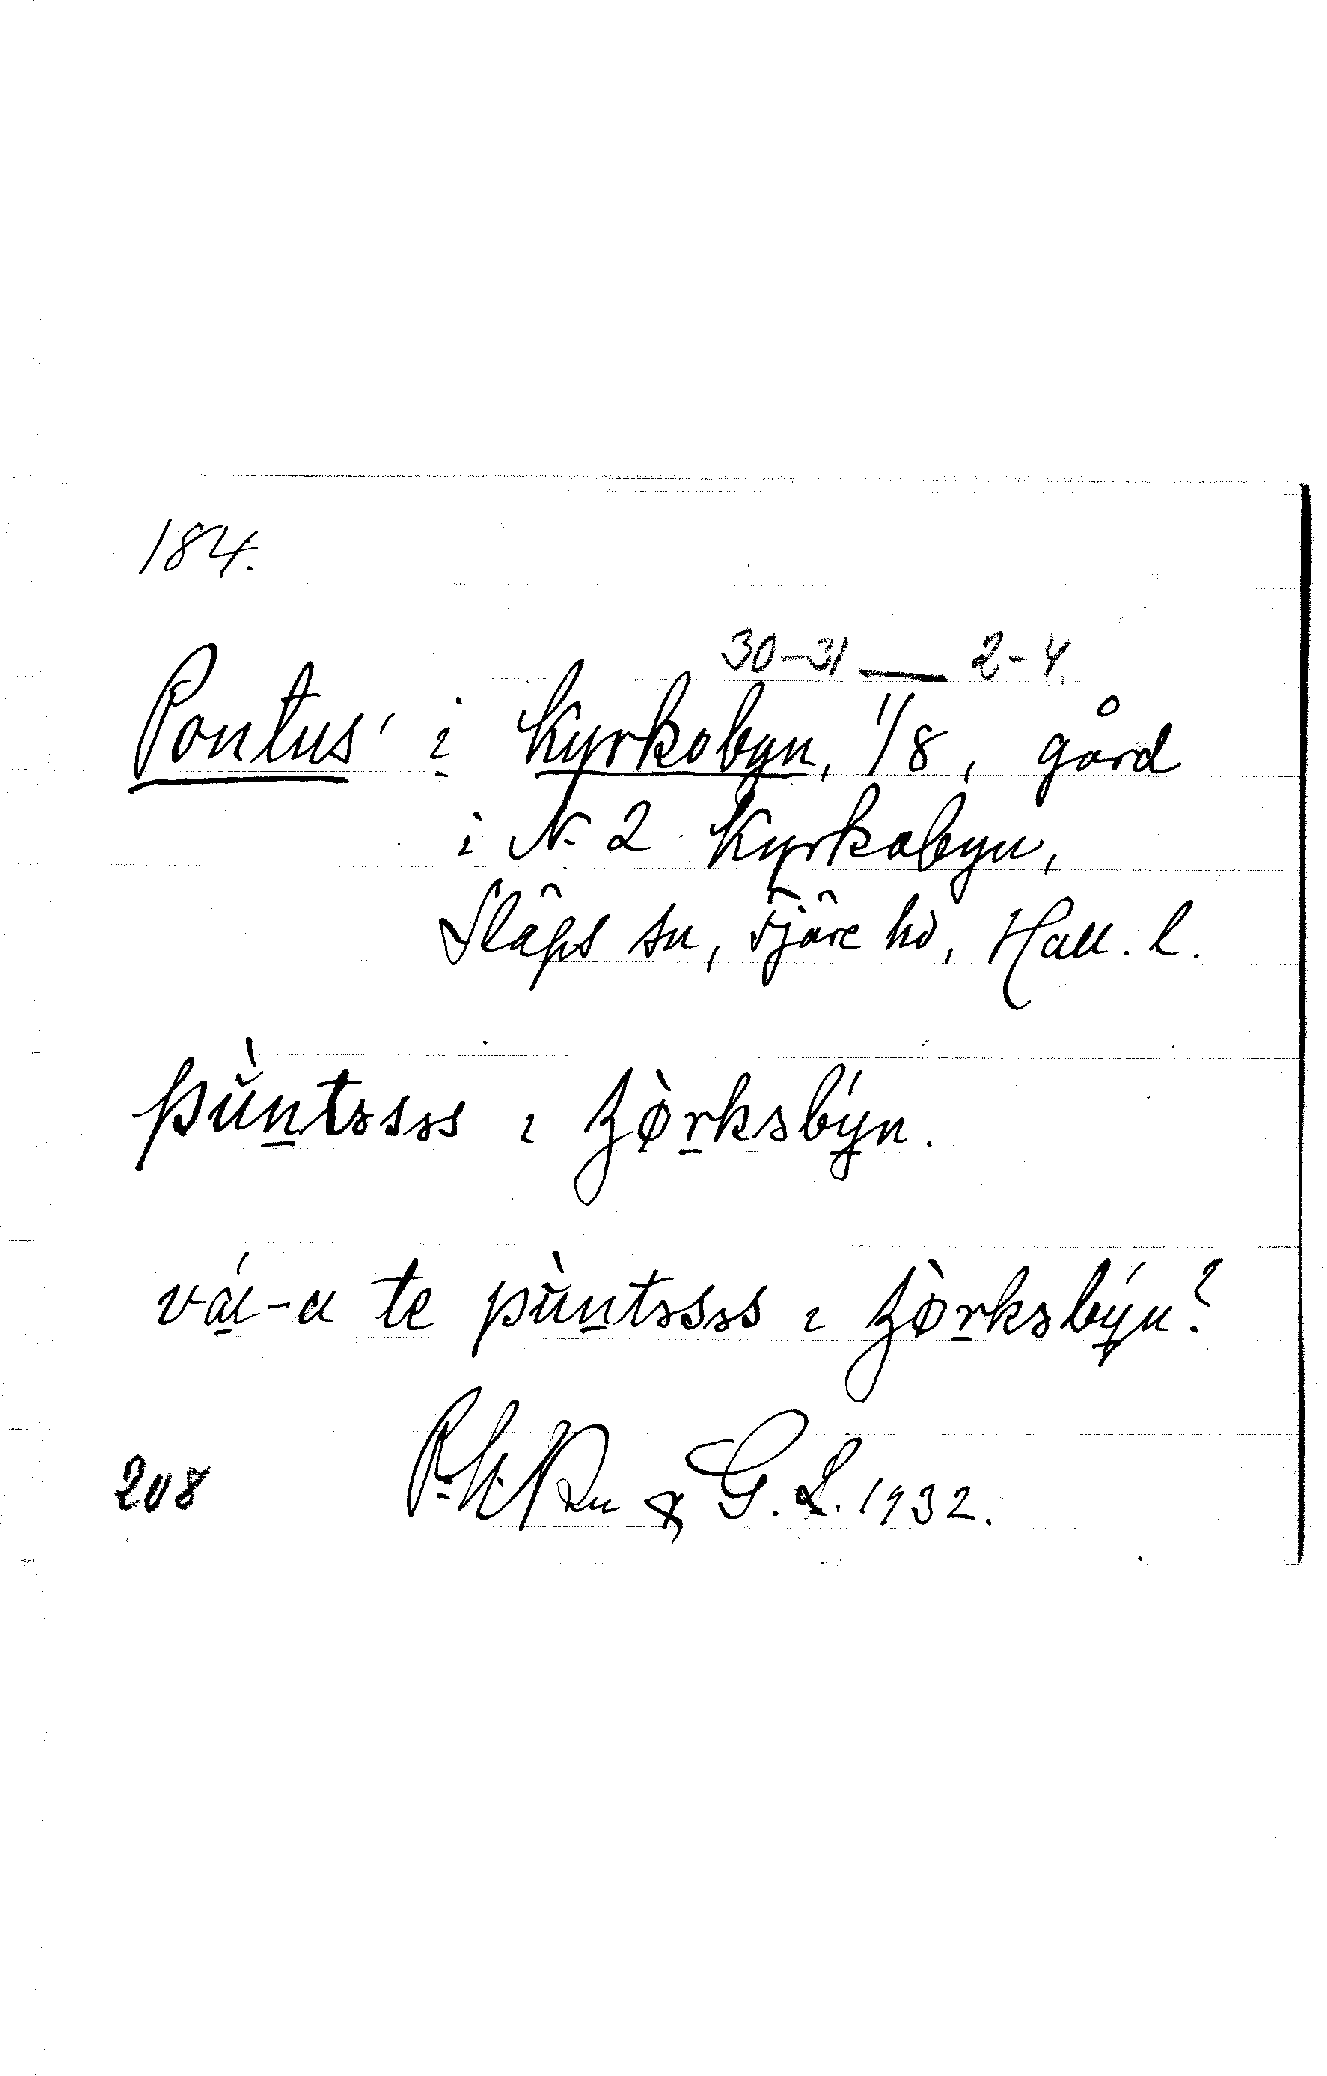 184.
30-31 — 2-4.
Pontus' i Kyrkobyn, 1/8, gård
i N. 2 Kyrkobyn,
Släps sn, Fjäre hd, Hall. l.
pùntəsəs ı ʒørkəbýn.
vá-a te pùntəsəs ı ʒørkəbýn?
& G. L. 1932.
208